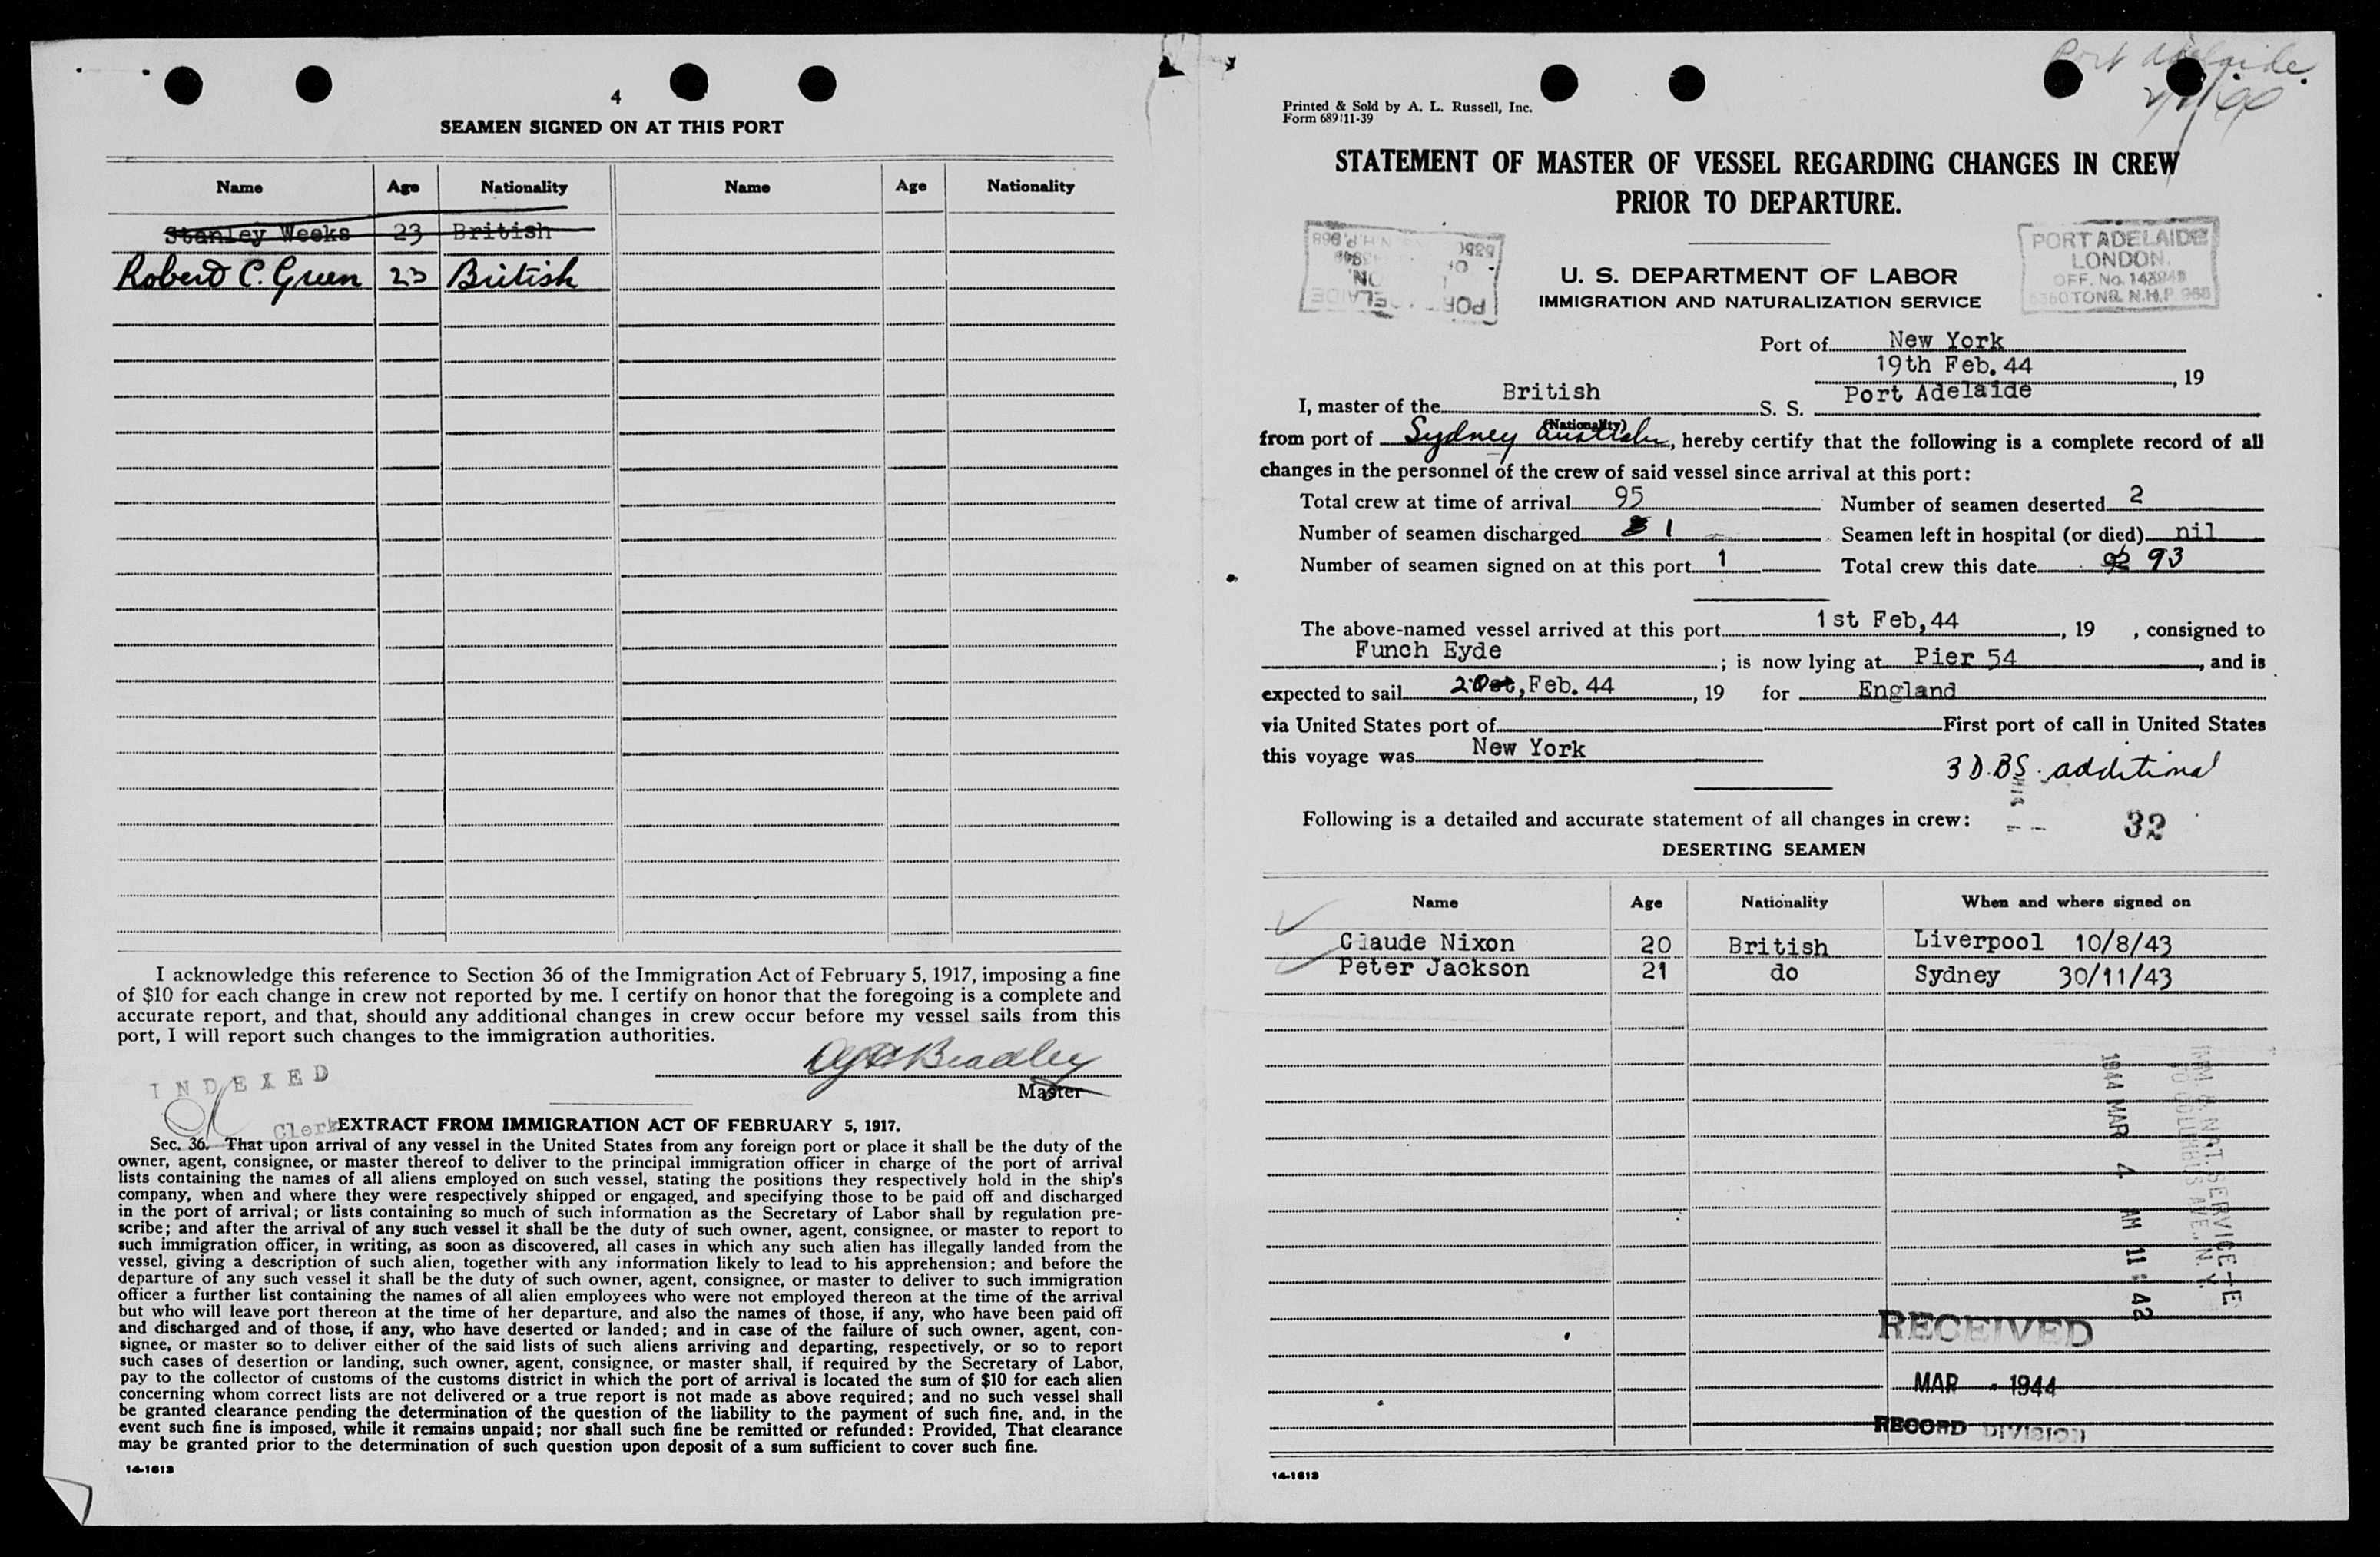 4
SEAMEN SIGNED ON AT THIS PORT
Name Age Nationality Name Age Nationality
Stanley Weeks 23 British
Robert C. Green 23 British
I acknowledge this reference to Section 36 of the Immigration Act of February 5, 1917, imposing a fine
of $10 for each change in crew not reported by me. I certify on honor that the foregoing is a complete and
accurate report, and that, should any additional changes in crew occur before my vessel sails from this
port, I will report such changes to the immigration authorities.
Bradley
Master
INDEXED
Clerk
EXTRACT FROM IMMIGRATION ACT OF FEBRUARY 5, 1917.
Sec. 36. That upon arrival of any vessel in the United States from any foreign port or place it shall be the duty of the
owner, agent, consignee, or master thereof to deliver to the principal immigration officer in charge of the port of arrival
lists containing the names of all aliens employed on such vessel, stating the positions they respectively hold in the ship's
company, when and where they were respectively shipped or engaged, and specifying those to be paid off and discharged
in the port of arrival; or lists containing so much of such information as the Secretary of Labor shall by regulation pre-
scribe; and after the arrival of any such vessel it shall be the duty of such owner, agent, consignee, or master to report to
such immigration officer, in writing, as soon as discovered, all cases in which any such alien has illegally landed from the
vessel, giving a description of such alien, together with any information likely to lead to his apprehension; and before the
departure of any such vessel it shall be the duty of such owner, agent, consignee, or master to deliver to such immigration
officer a further list containing the names of all alien employees who were not employed thereon at the time of the arrival
but who will leave port thereon at the time of her departure, and also the names of those, if any, who have been paid off
and discharged and of those, if any, who have deserted or landed; and in case of the failure of such owner, agent, con-
signee, or master so to deliver either of the said lists of such aliens arriving and departing, respectively, or so to report
such cases of desertion or landing, such owner, agent, consignee, or master shall, if required by the Secretary of Labor,
pay to the collector of customs of the customs district in which the port of arrival is located the sum of $10 for each alien
concerning whom correct lists are not delivered or a true report is not made as above required; and no such vessel shall
be granted clearance pending the determination of the question of the liability to the payment of such fine, and, in the
event such fine is imposed, while it remains unpaid; nor shall such fine be remitted or refunded: Provided, That clearance
may be granted prior to the determination of such question upon deposit of a sum sufficient to cover such fine.
14-1613
Port Adelaide
Printed & Sold by A. L. Russell, Inc.
Form 689:11-39
STATEMENT OF MASTER OF VESSEL REGARDING CHANGES IN CREW
PRIOR TO DEPARTURE.
PORT ADELAIDE
LONDON.
OFF. No.
5360 TONS. N.H.P. 968
U. S. DEPARTMENT OF LABOR
IMMIGRATION AND NATURALIZATION SERVICE
PORT ADELAIDE
LONDON.
OFF. No.
5360 TONS. N.H.P. 968
Port of New York
19th Feb. 44, 19
I, master of the British S. S. Port Adelaide
(Nationality)
from port of Sydney Australia, hereby certify that the following is a complete record of all
changes in the personnel of the crew of said vessel since arrival at this port:
Total crew at time of arrival 95 Number of seamen deserted 2
Number of seamen discharged 1 Seamen left in hospital (or died) nil
Number of seamen signed on at this port 1 Total crew this date 93
The above-named vessel arrived at this port 1st Feb, 44, 19 , consigned to
Funch Eyde; is now lying at Pier 54, and is
expected to sail 20, Feb. 44, 19 for England
via United States port of First port of call in United States
this voyage was New York
3 D.BS. additional
Following is a detailed and accurate statement of all changes in crew:
32
DESERTING SEAMEN
Name Age Nationality When and where signed on
Claude Nixon 20 British Liverpool 10/8/43
Peter Jackson 21 do Sydney 30/11/43
IMM. & NAT. SERVICE
70 COLUMBUS AVE., N.Y.
1944 MAR 4 AM 11:42
RECEIVED
MAR 1944
RECORD DIVISION
14-1613